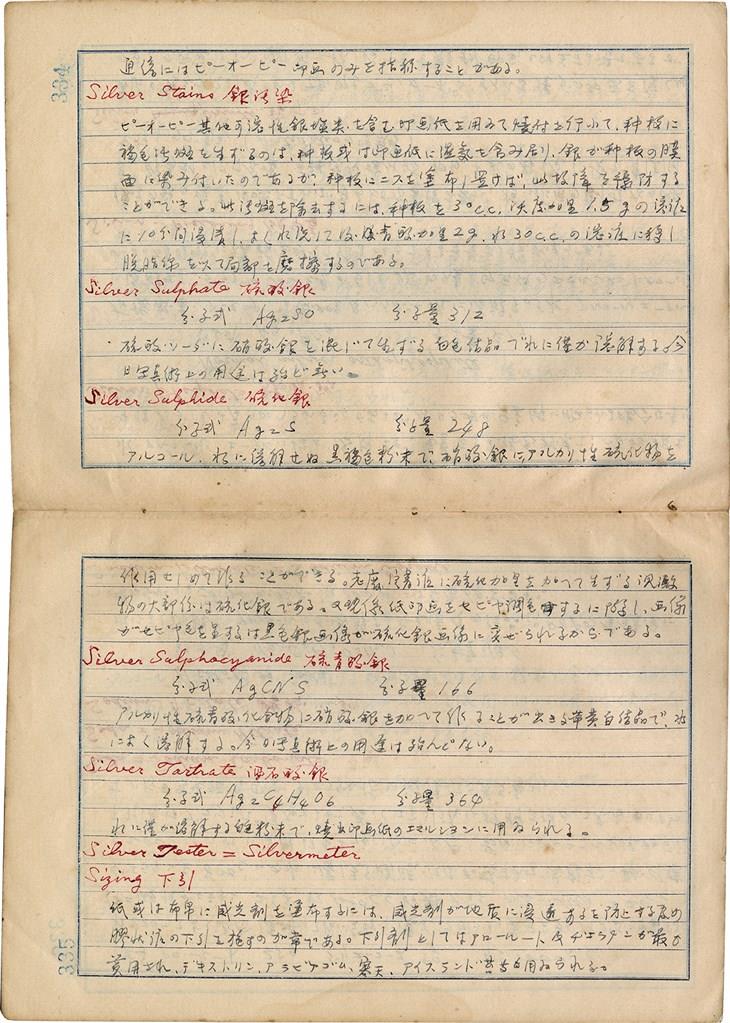 334
通俗にはピーオーピー印画のみを指称することがある。
Silver Stains 銀汚染
ピーオーピー其他可溶性銀塩類を含む印画紙を用ゐて焼付を行ふて、種板に
褐色汚斑を生ずるのは、種板或は印画紙に湿気を含み居り、銀が種板の膜
面に染み付いたのであるが、種板にニスを塗布し置けば、此故障を予防する
ことができる。此汚斑を除去するには、種板を30c.c. 沃度加里1.5gの溶液
に10分間浸漬し、よく水洗して後、青酸加里2g. 水30c.c.の溶液に移し
脱脂綿を以て局部を磨擦するのである。
Silver Sulphate 硫酸銀
分子式 Ag2SO 分子量 312
硫酸ソーダに硝酸銀を混じて生ずる白色結晶で水に僅か溶解する。今
日写真術上の用途は殆ど無い。
Silver Sulphide 硫化銀
分子式 Ag2S 分子量 248
アルコール、水に溶解せぬ黒褐色粉末で、硝酸銀にアルカリ性硫化物を
作用せしめて作ることができる。 定着液に硫化加里を加へて生ずる沈澱
物の大部分は硫化銀である。又現像紙印画をセピヤ調色するに際し、画像
がセピヤ色を呈するは黒色銀画像が硫化銀画像に変ぜられるからである。
Silver Sulphocyanide 硫青酸銀
分子式 AgCNS 分子量 166
アルカリ性硫青酸化合物に硝酸銀を加へて作ることが出来る 白結晶で、水
によく溶解する。今日写真術上の用途は殆んどない。
Silver Tartrate 酒石酸銀
分子式 Ag2C4H4O6 分子量 364
水に僅か溶解する 粉末で、焼出印画紙のエマルションに用ゐられる。
Silver Tester = Silvermeter
Sizing 下引
紙或は布帛に感光剤を塗布するには、感光剤が地質に浸透するを防止する為め
膠状液の下引を施すのが常である。下引剤としてはアロールート及ゼラチンが最も
賞用され、デキストリン、アラビヤゴム、寒天、アイスランド 等も用ゐられる。
335